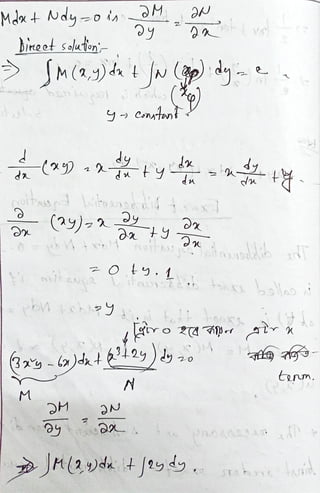 Mdx + Ndy = 0 is ∂M/∂y = ∂N/∂x
Direct solution:-
⇒ ∫M(x,y)dx + ∫N dy = c
y → constant.
d/dx (xy) = x dy/dx + y dx/dx = x dy/dx + y.
∂/∂x (xy) = x ∂y/∂x + y ∂x/∂x
= 0 + y.1
= y
[এটা 0 হবে কারণ এটা x
(3x²y - 6x)dx + (x³+2y)dy = 0
term.
M N
∂M/∂y = ∂N/∂x
⇒ ∫M(x,y)dx + ∫2y dy.